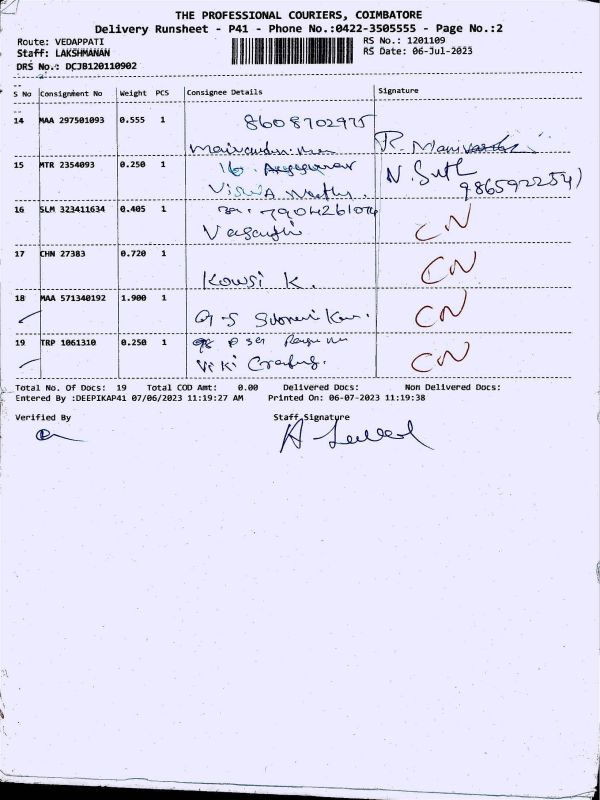 THE PROFESSIONAL COURIERS, COIMBATORE
Delivery Runsheet - P41 - Phone No.:0422-3505555 - Page No.:2
Route: VEDAPPATI
RS No.: 1201109
Staff: LAKSHMANAN
RS Date: 06-Jul-2023
DRS No.: DCJB120110902
S No Consignment No Weight PCS Consignee Details Signature
14 MAA 297501093 0.555 1 8608702975
R. Manivardhi
15 MTR 2354093 0.250 1 16.
N.
16 SLM 323411634 0.405 1
CN
17 CHN 27383 0.720 1
Kowsi K. CN
18 MAA 571340192 1.900 1
CN
19 TRP 1061310 0.250 1
Viki CN
Total No. Of Docs: 19 Total COD Amt: 0.00 Delivered Docs: Non Delivered Docs:
Entered By :DEEPIKAP41 07/06/2023 11:19:27 AM Printed On: 06-07-2023 11:19:38
Verified By Staff Signature